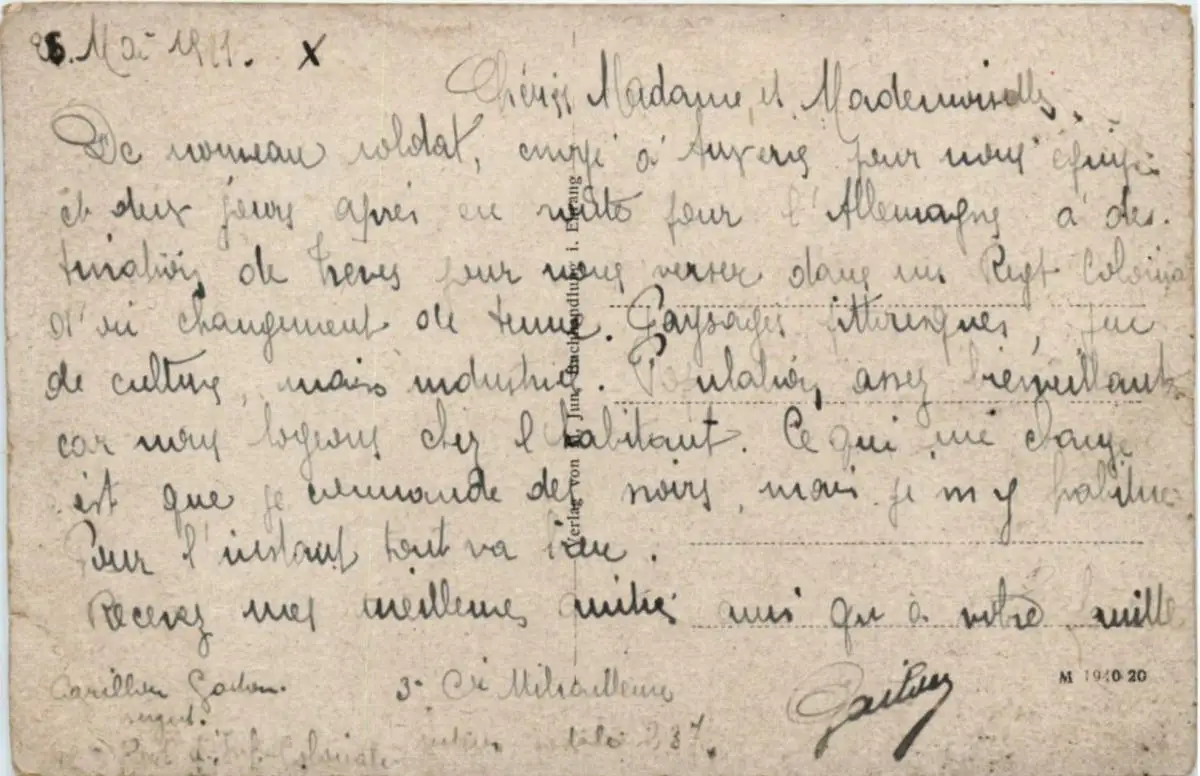 Mai 19 1. X
Chères Madame et Mademoiselle,
De nouveau soldat, à Auxerre pour nous équiper
et deux jours après en route pour l'Allemagne à des-
tination de Trèves pour nous verser dans un Regt Colonial
d'où changement de tenue. Paysages pittoresques, peu
de culture, mais industriel. Population assez bienveillante
car nous logeons chez l'habitant. Ce qui me change
est que je commande des noirs, mais je m'y habitue
Pour l'instant tout va bien.
Recevez mes meilleures amitiés ainsi qu'à votre famille
Gaston
Carillon Gaston. 3e Cie Mitrailleuse
sergent. secteur postal 237.
Inf. Coloniale
Verlag von Jun. Buchhandlung i. E
M 1940 20